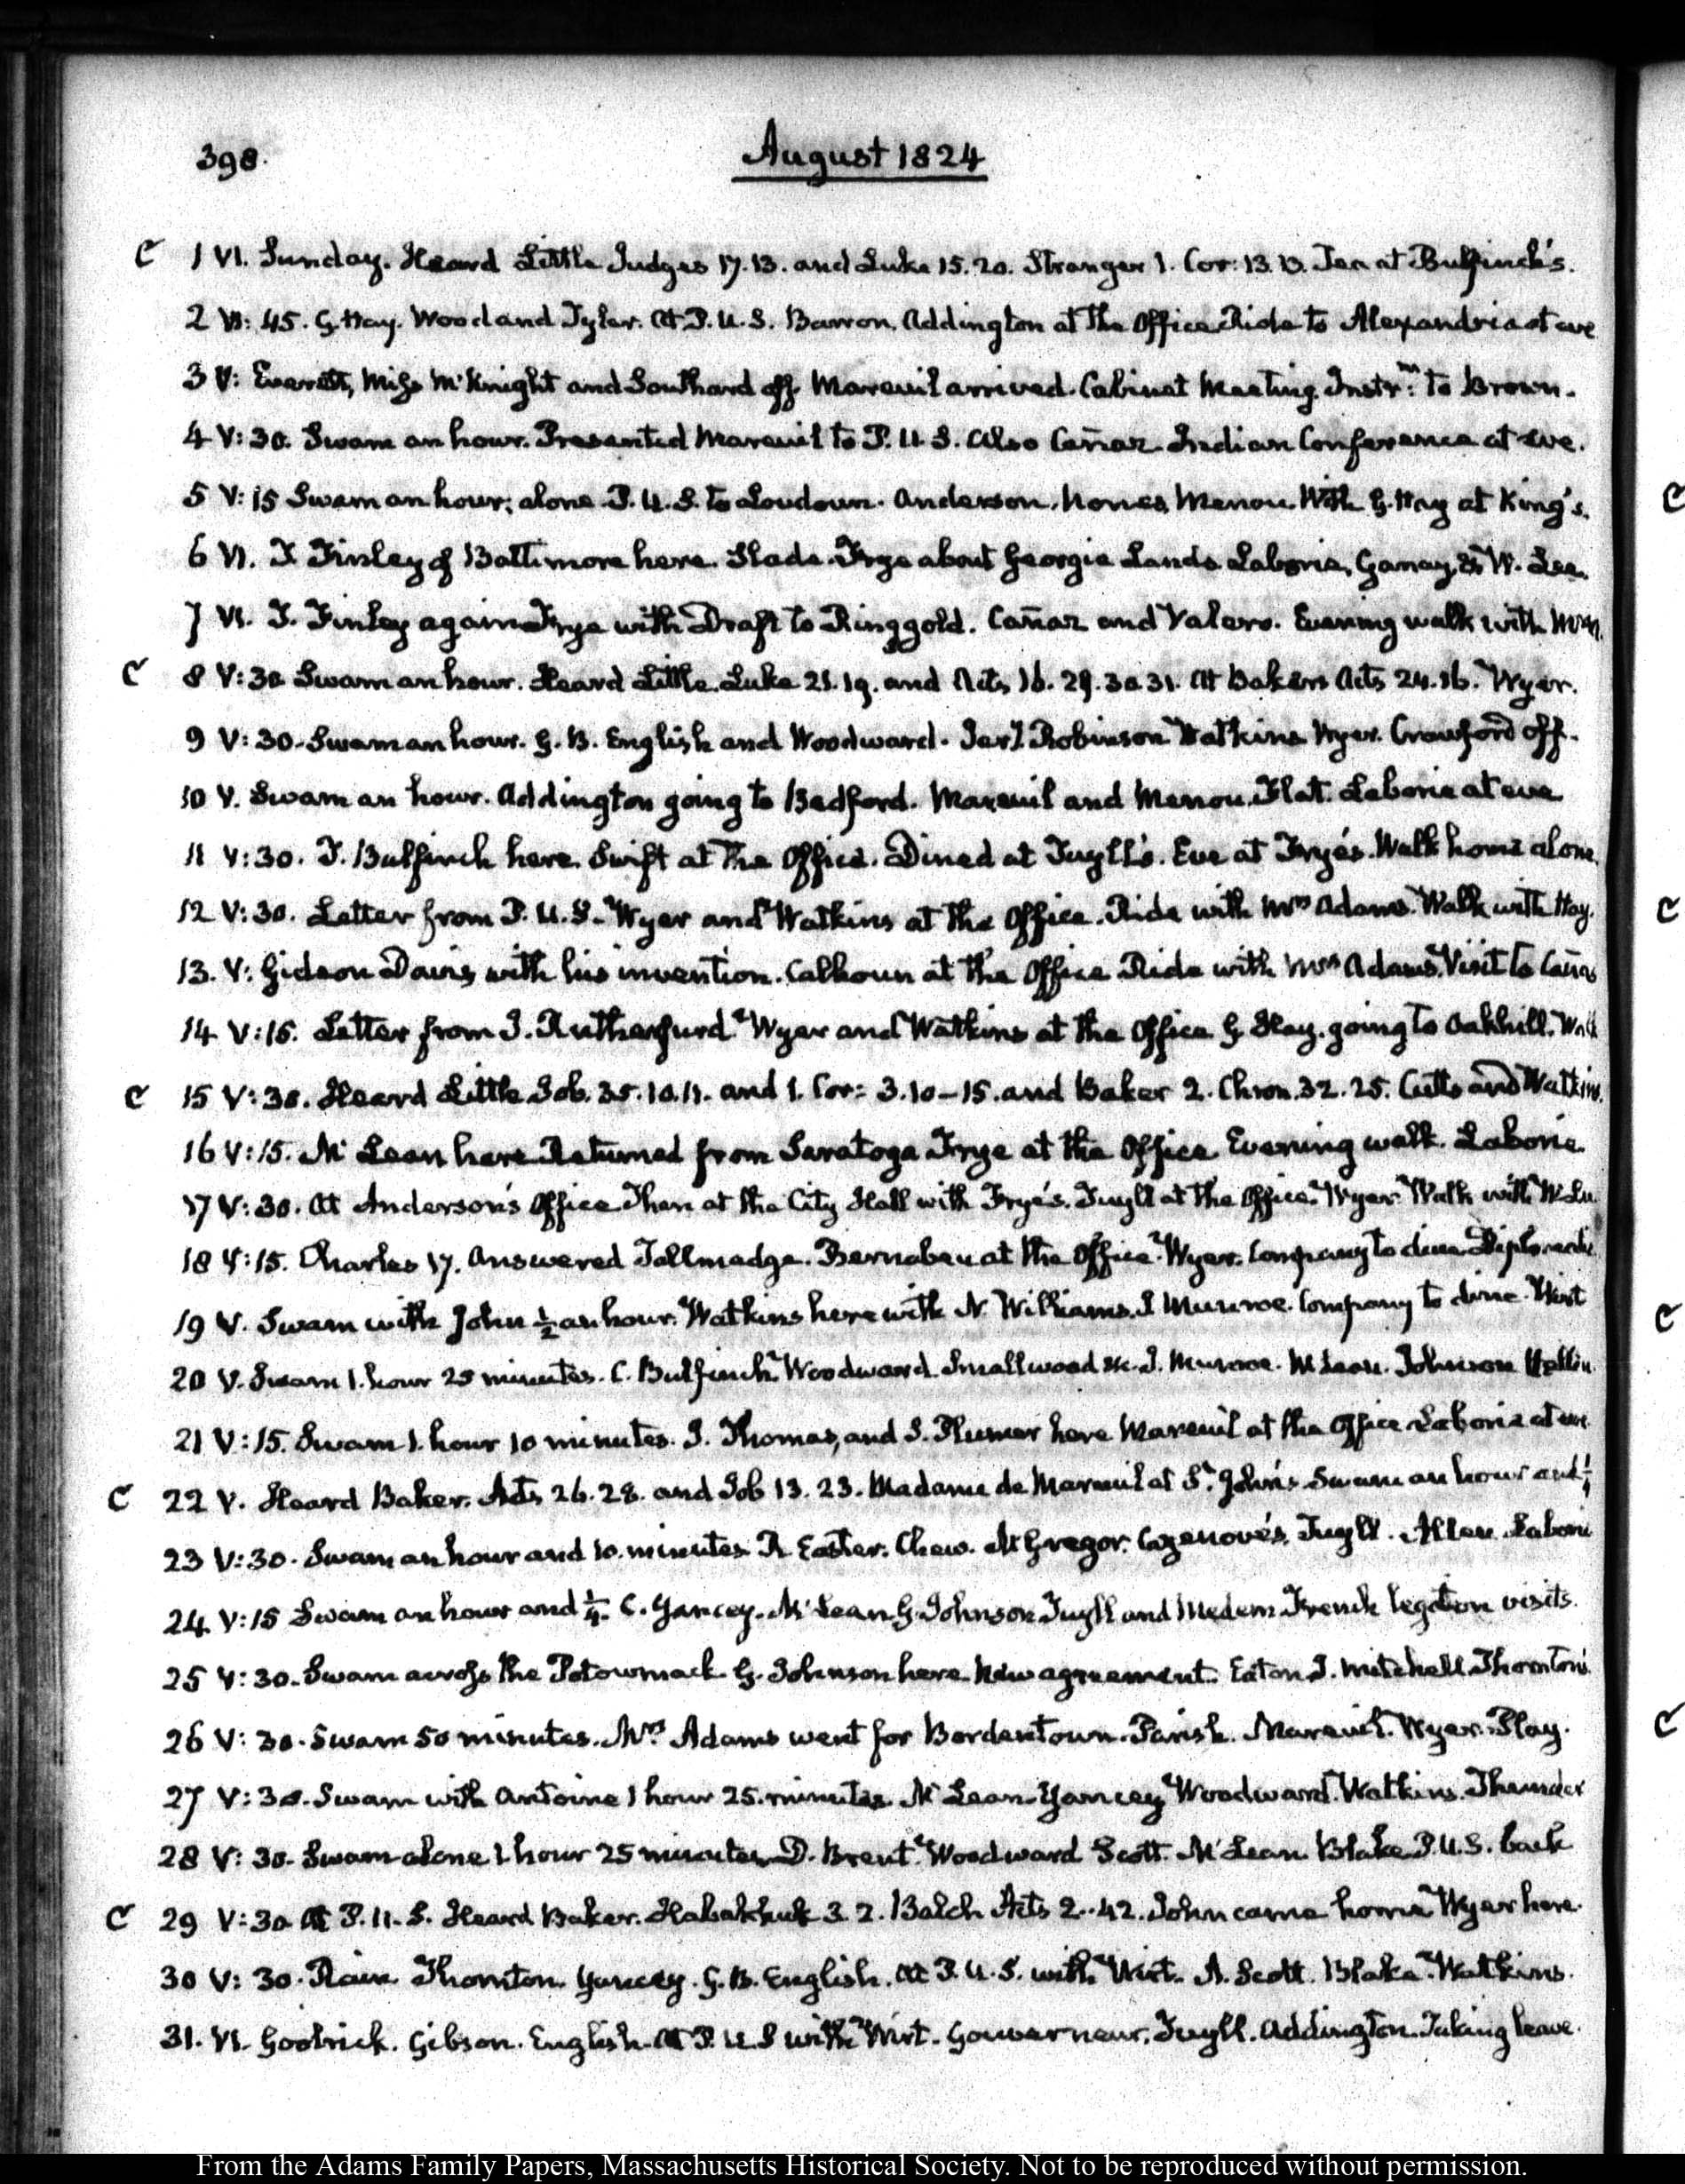 398.
August 1824
C 1 VI. Sunday. Heard Little Judges 17.13. and Luke 15.20. Stranger 1. Cor: 13.13. Tea at Bulfinch's.
2 VI: 45. G. Hay. Wood and Tyler. At P.U.S. Barron. Addington at the Office Ride to Alexandria at eve
3 V: Everett, Miss McKnight and Southard off. Mareuil arrived. Cabinet Meeting. Instrns: to Brown.
4 V: 30. Swam an hour. Presented Mareuil to P.U.S. Also Cañaz. Indian Conference at Eve.
5 V: 15 Swam an hour; alone. P.U.S. to Loudoun. Anderson, Nones, Menou. With G. Hay at King's.
6 VI. J. Finley of Baltimore here. Slade. Frye about Georgia Lands Laborie, Ganay, W. Lee.
7 VI. J. Finley again Frye with Draft to Ringgold. Cañaz and Valero. Evening walk with
C 8 V: 30 Swam an hour. Heard Little. Luke 21.19. and Acts 16. 29.30.31. At Bakers Acts 24.16. Wyer.
9 V: 30. Swam an hour. G. B. English and Woodward. Robinson Watkins Wyer. Crawford off.
10 V. Swam an hour. Addington going to Bedford. Mareuil and Menou. Flat. Laborie at eve
11 V: 30. T. Bulfinch here. Swift at the Office. Dined at Tuyll's. Eve at Frye's. Walk home alone.
12 V: 30. Letter from P.U.S. Wyer and Watkins at the Office. Ride with Mrs Adams. Walk with Hay.
13. V: Gideon Davis with his invention. Calhoun at the Office Ride with Mrs Adams. Visit to
14 V: 15. Letter from J. Rutherfurd. Wyer and Watkins at the Office G. Hay. going to Oakhill.
C 15 V: 30. Heard Little Job. 35.10.11. and 1. Cor: 3.10-15. and Baker 2. Chron. 32.25. Cutts and Watkins.
16 V: 15. McLean here Returned from Saratoga Frye at the Office Evening walk. Laborie.
17 V: 30. At Anderson's Office Then at the City Hall with Frye's. Tuyll at the Office. Wyer. Walk with
18 V: 15. Charles 17. Answered Tallmadge. Bernabeu at the Office. Wyer. Company to dine
19 V. Swam with John ½ an hour. Watkins here with N. Williams. J. Munroe. Company to dine. Wirt
20 V. Swam 1. hour 25 minutes. C. Bulfinch. Woodward. Smallwood &c. J. Munroe. McLean. Johnson
21 V: 15. Swam 1. hour 10 minutes. J. Thomas, and S. Plumer here Mareuil at the Office Laborie at eve
C 22 V. Heard Baker. Acts 26.28. and Job 13.23. Madame de Mareuil at St. John's. Swam an hour and ¼
23 V: 30. Swam an hour and 10. minutes R. Easter. Chew. McGregor. Cazenove's. Tuyll. Allen. Laborie
24 V: 15 Swam an hour and ¼. C. Yancey. McLean. G. Johnson Tuyll and Medem French legation visits.
25 V: 30. Swam across the Potowmack G. Johnson here New agreement. Eaton J. Mitchell Thornton's
26 V: 30. Swam 50 minutes. Mrs Adams went for Bordentown. Parish. Mareuil. Wyer. Play.
27 V: 30. Swam with Antoine 1 hour 25. minutes. McLean. Yancey Woodward. Watkins. Thunder
28 V: 30. Swam alone 1 hour 25 minutes D. Brent. Woodward Scott. McLean Blake P.U.S. back
C 29 V: 30 At P.U.S. Heard Baker. Habakkuk 3.2. Balch Acts 2.42. John came home. Wyer here.
30 V: 30. Rain Thornton. Yancey. G. B. English. At P.U.S. with Wirt. A. Scott. Blake. Watkins.
31. VI. Goolrick. Gibson. English. At P.U.S with Wirt. Gouverneur. Tuyll. Addington. Taking leave.
From the Adams Family Papers, Massachusetts Historical Society. Not to be reproduced without permission.